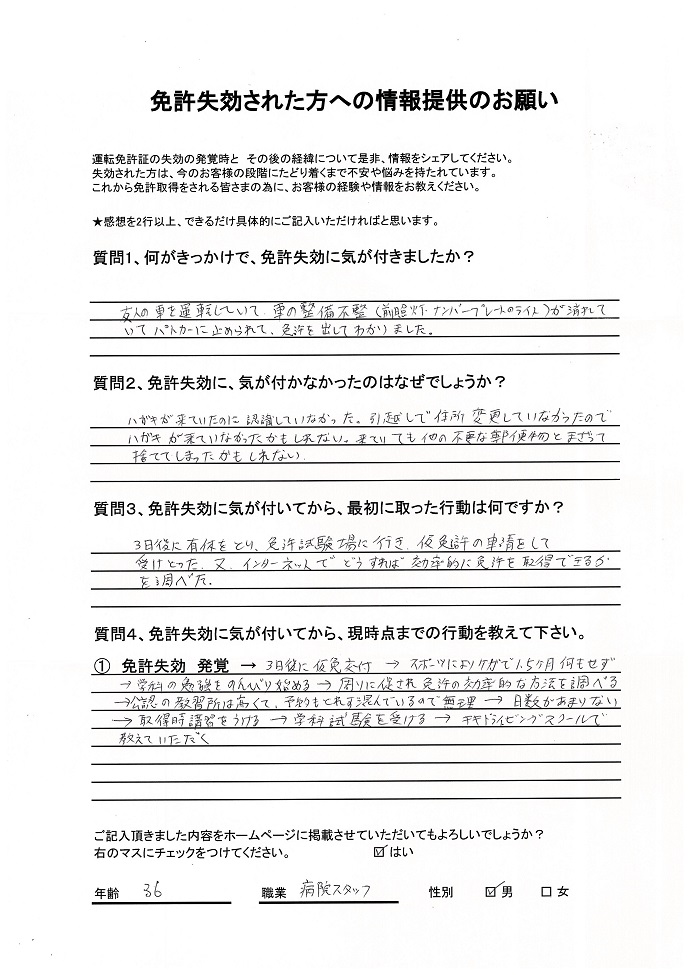 免許失効された方への情報提供のお願い
運転免許証の失効の発覚時と その後の経緯について是非、情報をシェアしてください。
失効された方は、今のお客様の段階にたどり着くまで不安や悩みを持たれています。
これから免許取得をされる皆さまの為に、お客様の経験や情報をお教えください。
★感想を2行以上、できるだけ具体的にご記入いただければと思います。
質問1、何がきっかけで、免許失効に気が付きましたか?
友人の車を運転していて、車の整備不整(前照灯・ナンバープレートのライト)が消れて
いてパトカーに止められて、免許を出してわかりました。
質問2、免許失効に、気が付かなかったのはなぜでしょうか?
ハガキが来ていたのに認識していなかった。引越しで住所変更していなかったので
ハガキが来ていなかったかもしれない。来ていても他の不要な郵便物とまざって
捨ててしまったかもしれない。
質問3、免許失効に気が付いてから、最初に取った行動は何ですか?
3日後に有休をとり、免許試験場に行き、仮免許の申請をして
受けとった。又、インターネットでどうすれば効率的に免許を取得できるか
を調べた。
質問4、免許失効に気が付いてから、現時点までの行動を教えて下さい。
① 免許失効 発覚 → 3日後に仮免交付 → スポーツによりケガで1.5ヶ月何もせず
→ 学科の勉強をのんびり始める → 周りに促され免許の効率的な方法を調べる
→ 公認の教習所は高くて、予約もとれず混んでいるので無理 → 日数があまりない
→ 取得時講習をうける → 学科試験を受ける → キキドライビングスクールで
教えていただく
ご記入頂きました内容をホームページに掲載させていただいてもよろしいでしょうか?
右のマスにチェックをつけてください。 ☑はい
年齢 36 職業 病院スタッフ 性別 ☑男 □女